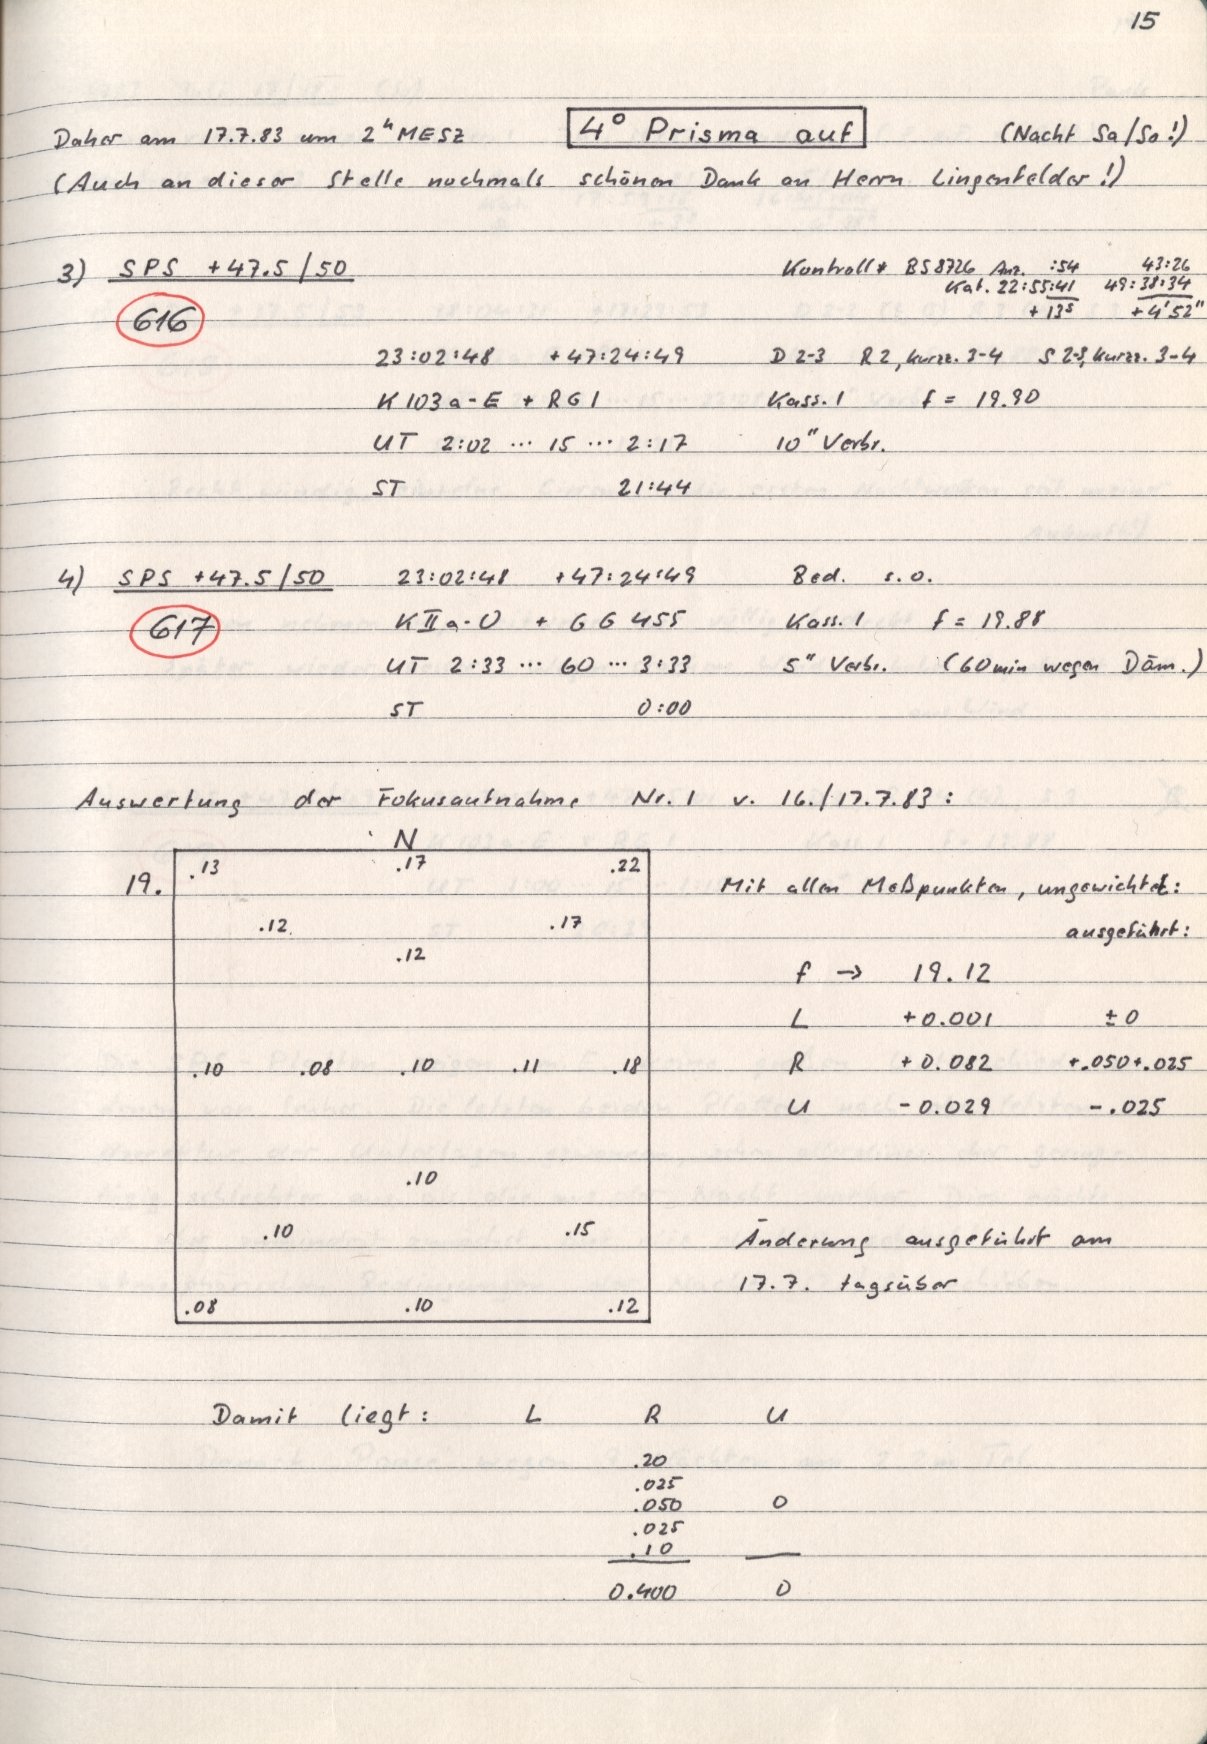 15
Daher am 17.7.83 um 2ʰ MESZ 4° Prisma auf (Nacht Sa/So!)
(Auch an dieser Stelle nochmals schönen Dank an Herrn Lingenfelder!)
3) SPS +47.5/50 Kontroll* BS8726 Anz. :54 43:26
Kat. 22:55:41 49:38:34
616 +13ˢ +4'52"
23:02:48 +47:24:49 D 2-3 R 2, kurzz. 3-4 S 2-3, kurzz. 3-4
K 103a-E + RG1 Kass. 1 f = 19.90
UT 2:02 ... 15 ... 2:17 10" Verbr.
ST 21:44
4) SPS +47.5/50 23:02:48 +47:24:49 Bed. s.o.
617 K IIa-O + GG 455 Kass. 1 f = 19.88
UT 2:33 ... 60 ... 3:33 5" Verbr. (60min wegen Däm.)
ST 0:00
Auswertung der Fokusaufnahme Nr. 1 v. 16./17.7.83:
N
19. .13 .17 .22
Mit allen Meßpunkten, ungewichtet:
.12 .17 ausgeführt:
.12
f → 19.12
L +0.001 ±0
.10 .08 .10 .11 .18 R +0.082 +.050+.025
U -0.029 -.025
.10
.10 .15 Änderung ausgeführt am
17.7. tagsüber
.08 .10 .12
Damit liegt: L R U
.20
.025
.050 0
.025
.10
0.400 0